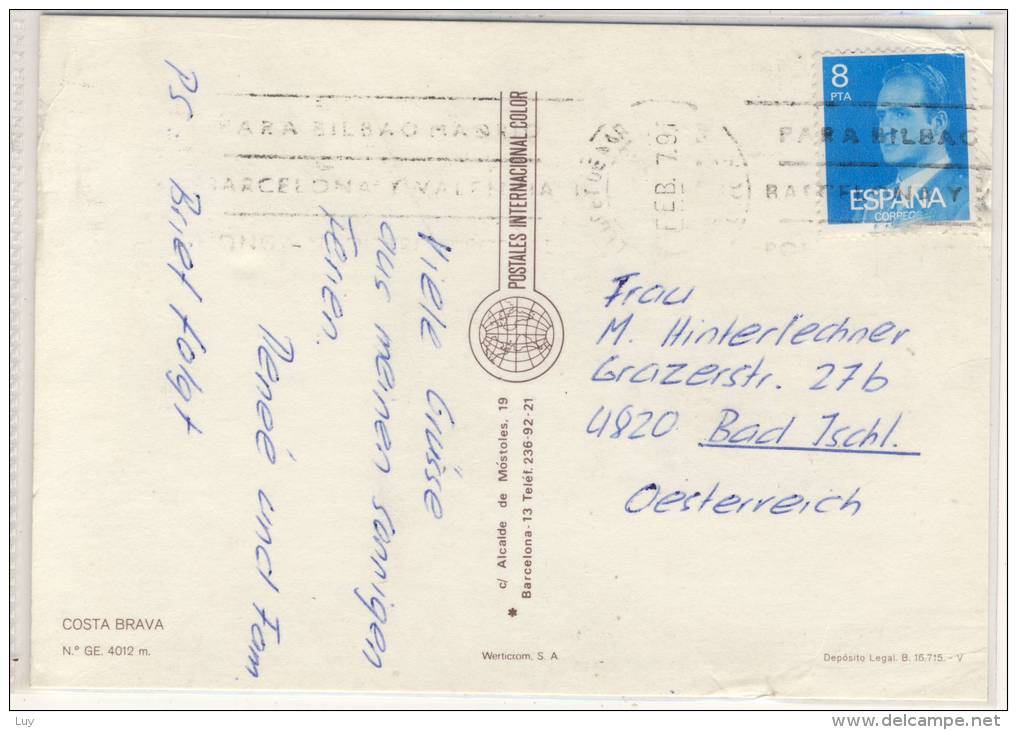 8
PTA
ESPAÑA
CORREOS
PARA BILBAO
BARCELONA Y
PARA BILBAO
BARCELONA Y VALENCIA
FEB. 79
POSTALES INTERNACIONAL COLOR
c/ Alcalde de Móstoles, 19
Barcelona-13 Teléf. 236-92-21
Viele Grüsse
aus meinen sonnigen
Ferien.
Reneé und Fam.
PS. Brief folgt
Frau
M. Hinterlechner
Grazerstr. 27b
4820 Bad Ischl.
Oesterreich
COSTA BRAVA
N.º GE. 4012 m.
Werticrom, S. A.
Depósito Legal. B. 16.715. - V
Luy
delcampe.net